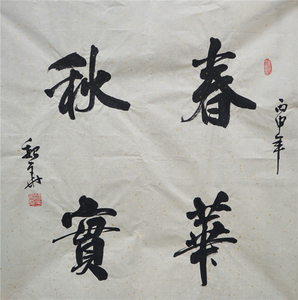 春華
秋實
丙申年